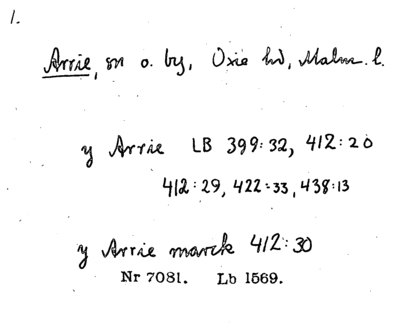 1.
Arrie, sn o. by, Oxie hd, Malm. l.
y Arrie LB 399:32, 412:20
412:29, 422:33, 438:13
y Arrie marck 412:30
Nr 7081. Lb 1569.